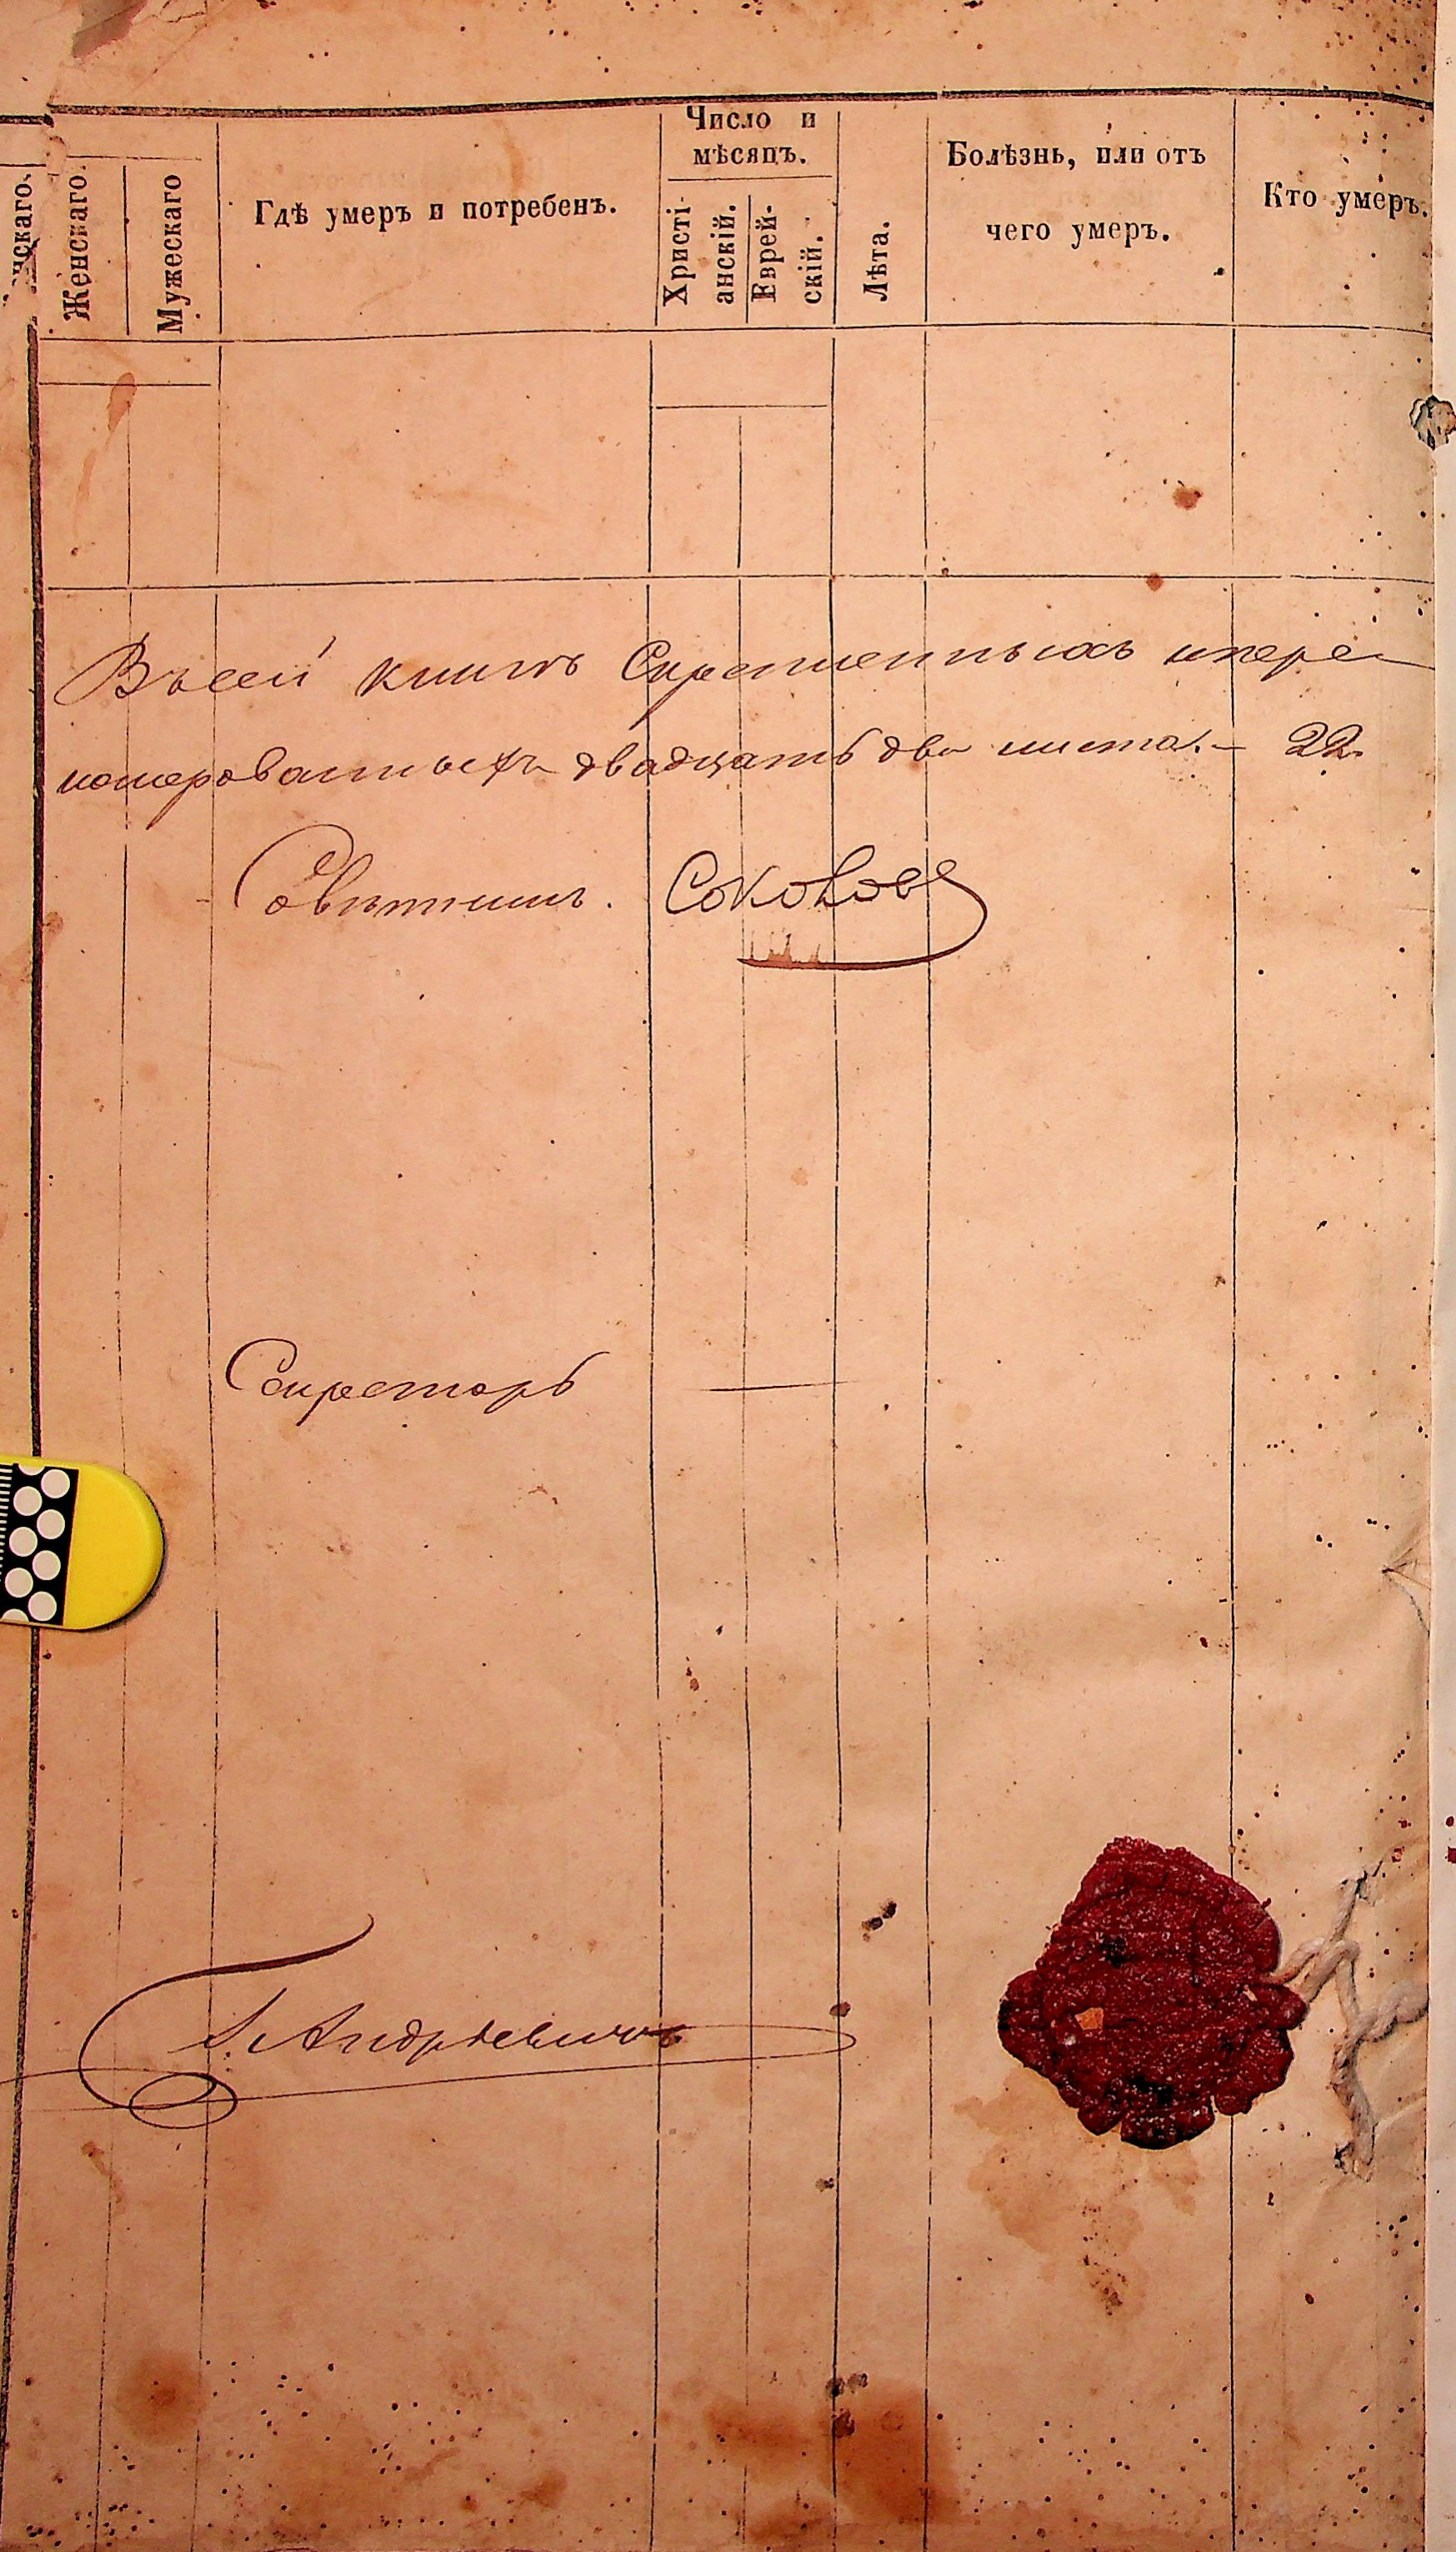 Женскаго.
Мужескаго
Гдѣ умеръ и потребенъ.
Число и
мѣсяцъ.
Христі-
анскій.
Еврей-
скій.
Лѣта.
Болѣзнь, или отъ
чего умеръ.
Кто умеръ.
Въ сей книгѣ Скрепленныхъ и пере
номерованныхъ двадцать два листа. — 22
Совѣтникъ. Соколовъ
Секретарь
Андріевичъ